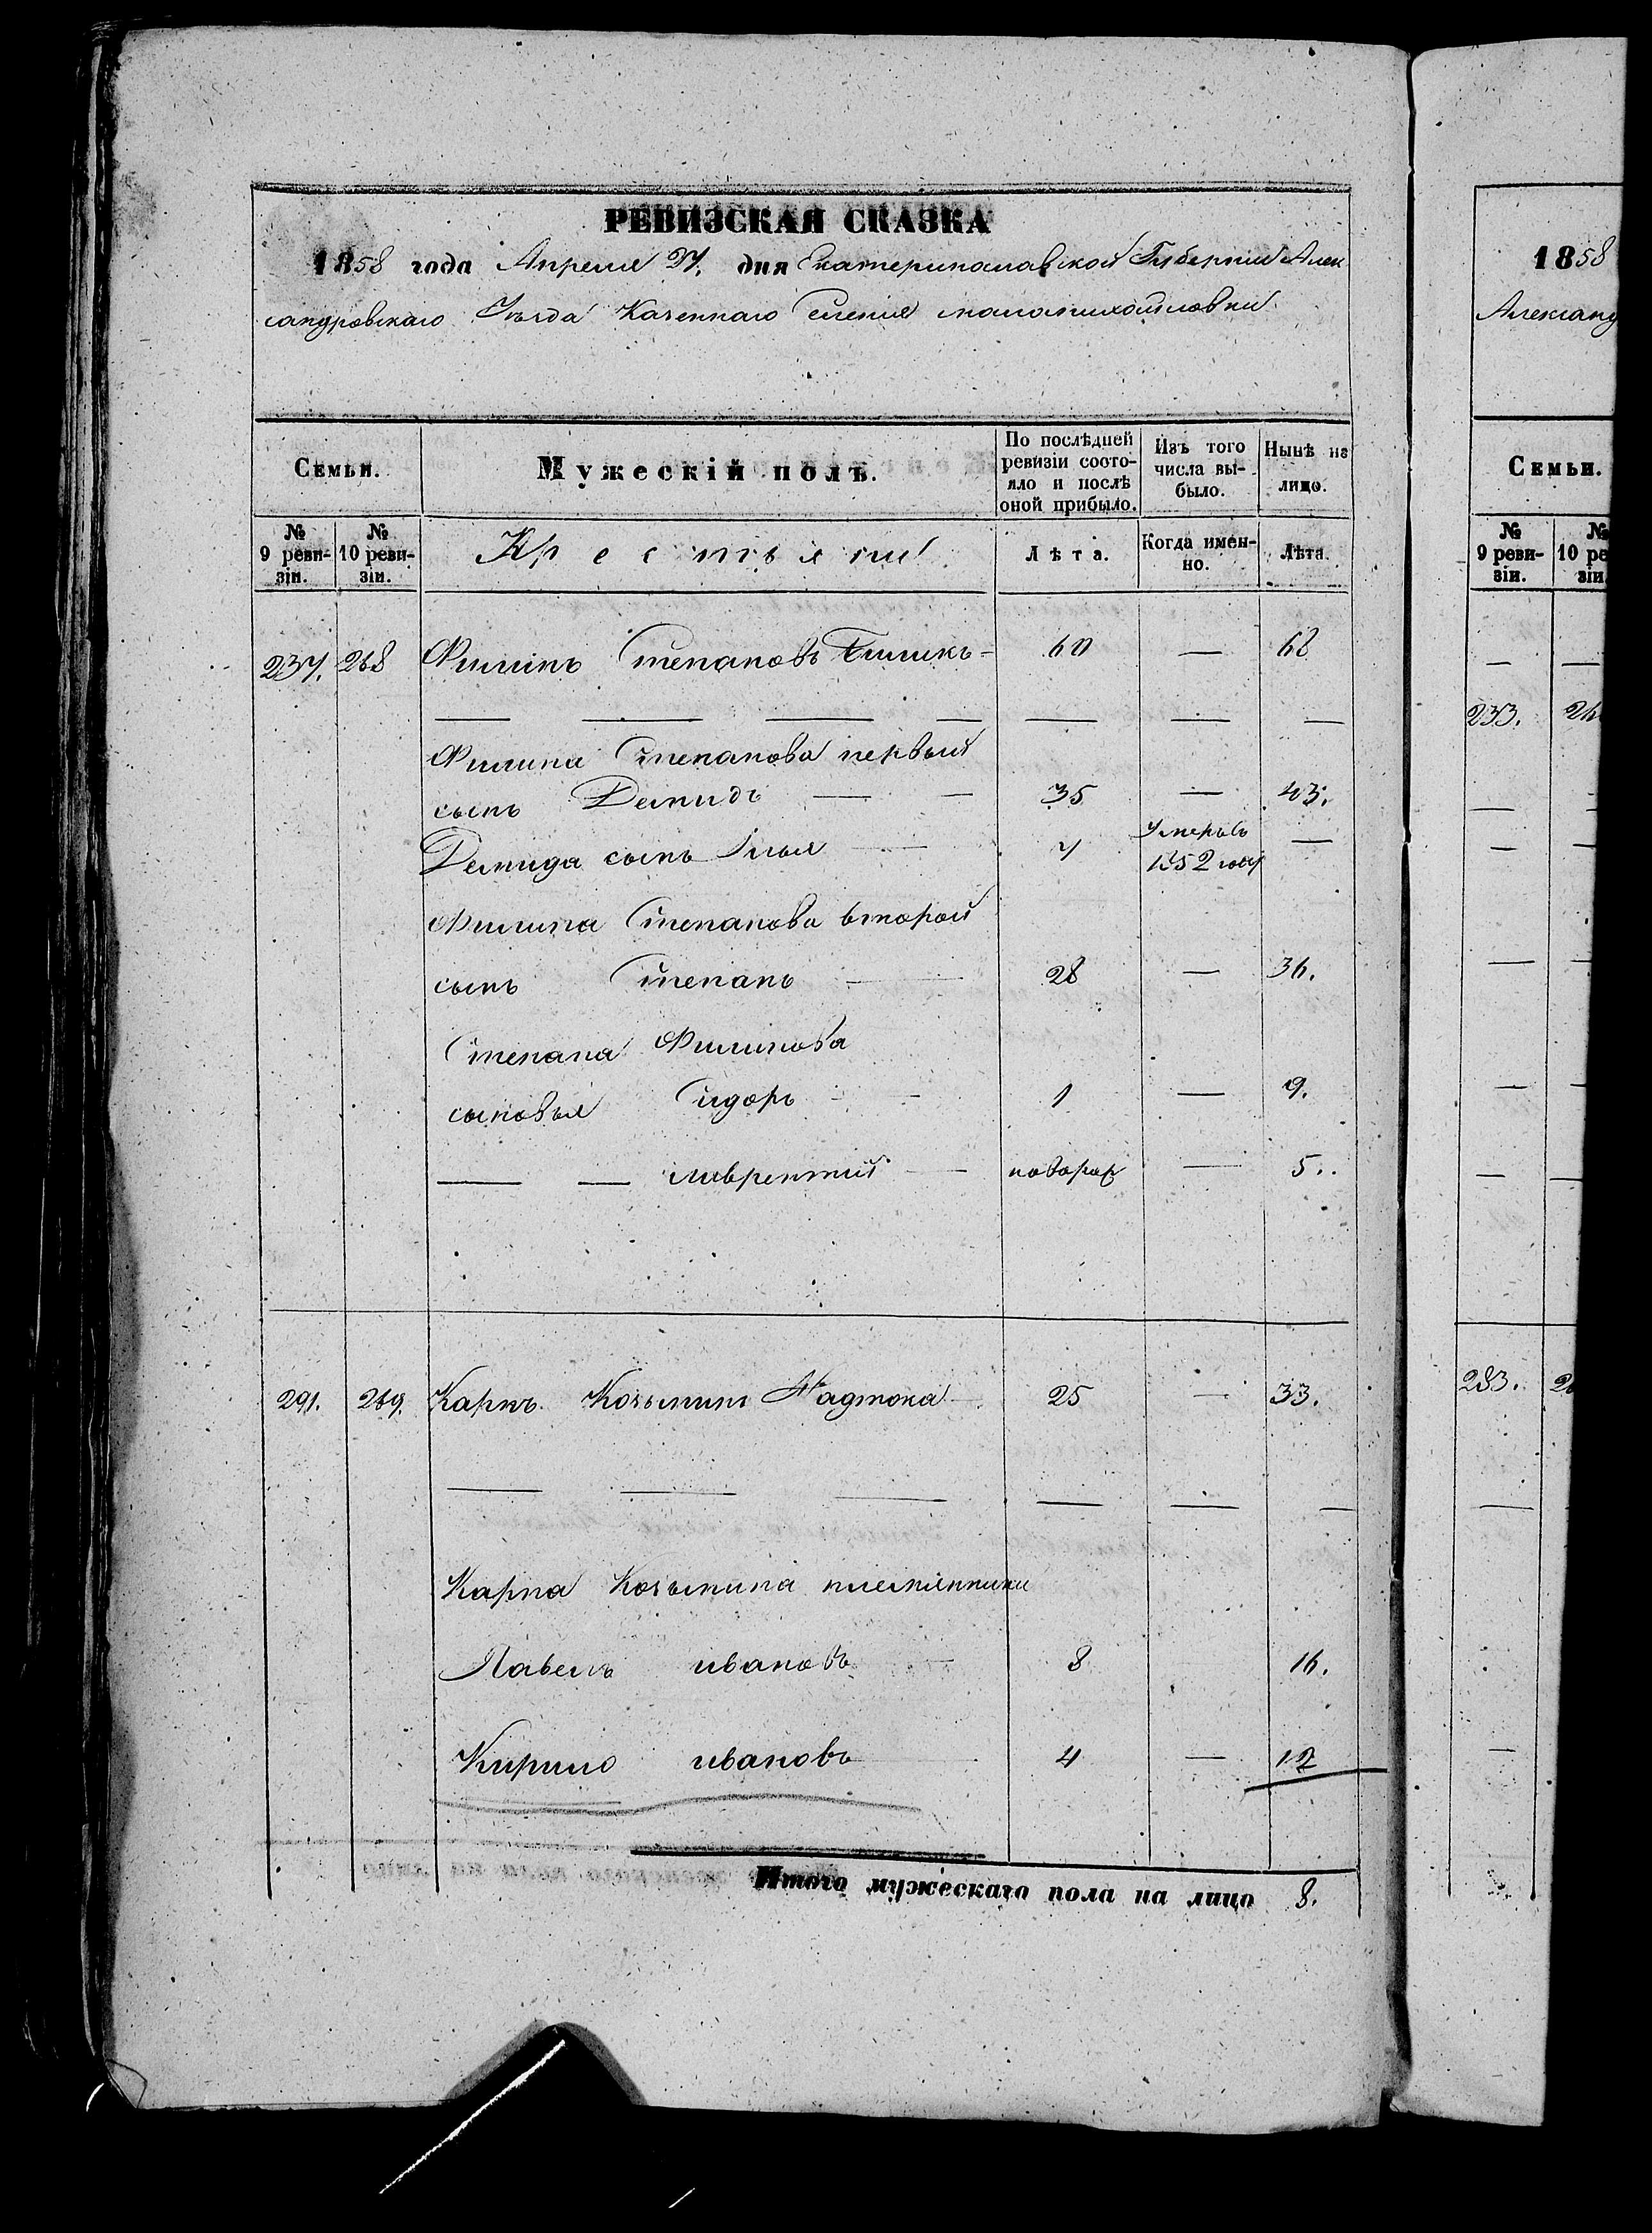 РЕВИЗСКАЯ СКАЗКА
1858 года Апреля 27. дня Екатеринославской Губерніи Алек
сандровскаго Уѣзда Казеннаго Селенія маломихайловки
Семьи.
Мужескій полъ.
По послѣдней ревизіи состояло и послѣ оной прибыло.
Изъ того числа выбыло.
Нынѣ на лицо.
№ 9 ревизіи.
№ 10 ревизіи.
Крестьяни
Лѣта.
Когда именно.
Лѣта.
237. 268 Филипъ Степановъ 60 — 68
Филипа Степанова первый
сынъ Демидъ — — 35 — 43.
Демида сынъ Илья — 7 Умеръ въ 1852 году —
Филипа Степанова второй
сынъ Степанъ — 28 — 36.
Степана Филипова
сыновья Сидоръ — 1 — 9.
— — лаврентий — новорож — 5.
291. 269. Карпъ Козьминъ Надтока 25 — 33.
Карпа Козьмина племянники
Павелъ ивановъ 8 16.
Кирило ивановъ 4 — 12
Итого мужескаго пола на лицо 8.
1858
Александ
Семьи.
№ 9 ревизіи.
№ 10 ре
зіи
233.
283.